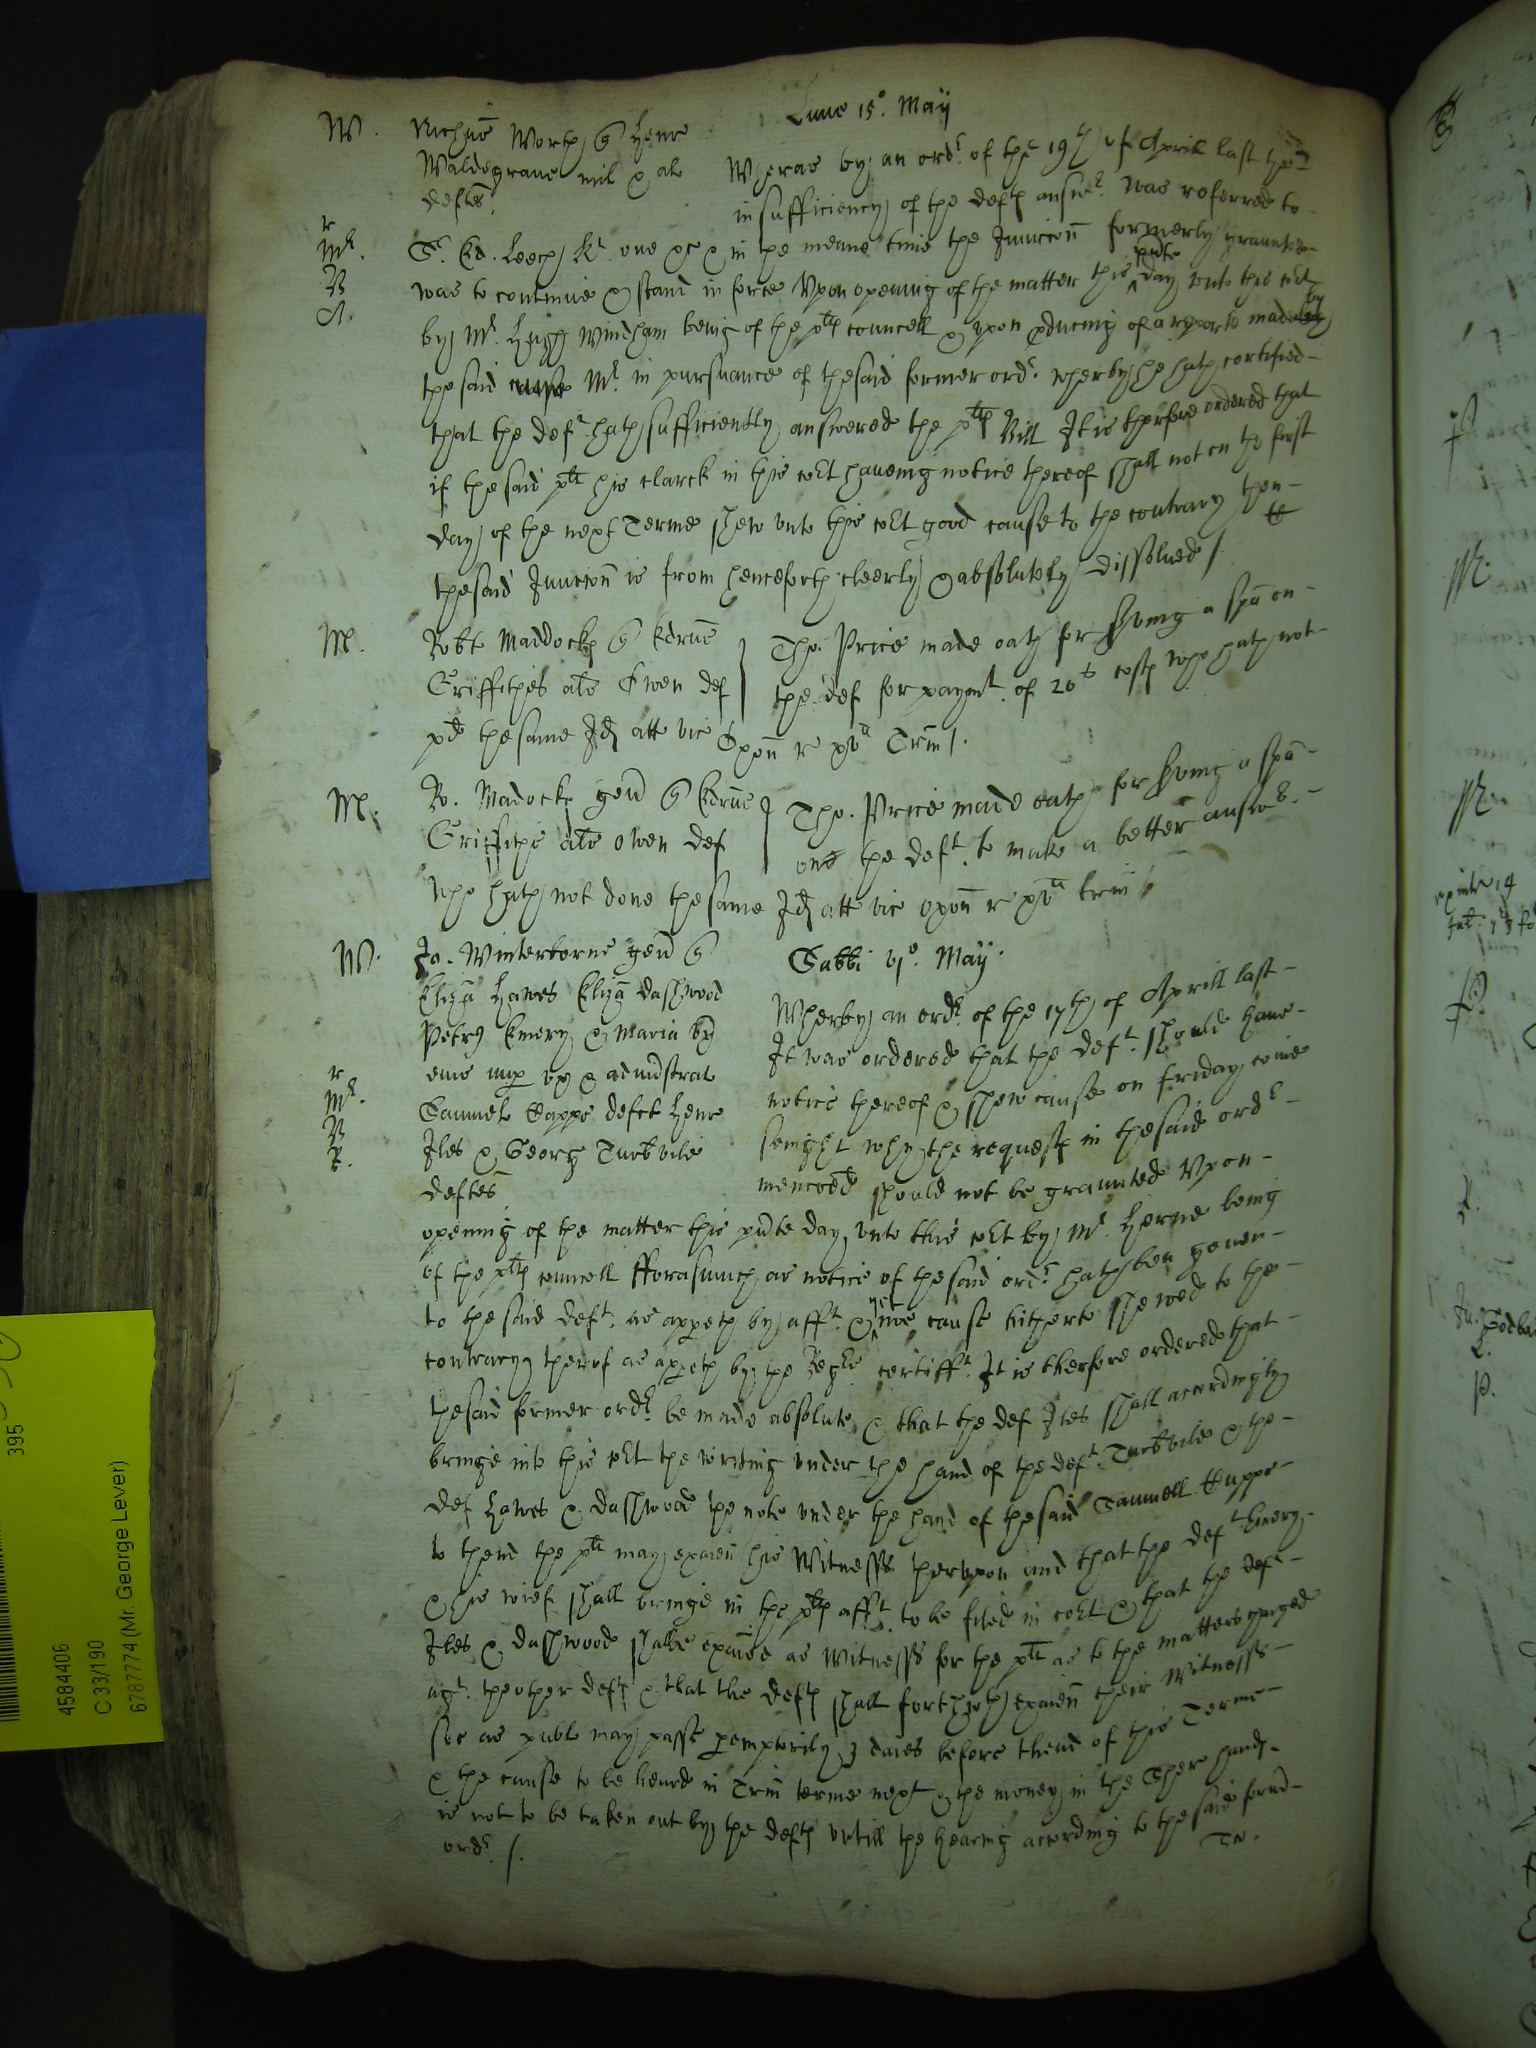 Lune 15o. Maij
W. Richus Worth con Henr
Waldegrave mil & al
deftes
Wheras by an ordr. of the 19th of Aprill last the
insufficiency of the defts answr. was referred to
r Mr. Sr. Ed. Leech Kt. one &c & in the meane time the Iniuccon formerly graunted
B was to continue & stand in force Vpon opening of the matter this pnte day vnto this cort
A. by Mr. Hugh Windham being of the plts councell & vpon pducing of a reporte made by
the said Mr. in pursuance of the said former ordr. wherby he hath certified
that the deft. hath sufficiently answered the plts Bill It is therfore ordered that
if the said plt his clarck in this cort haveing notice thereof shall not on the first
day of the next Terme shew vnto this cort good cause to the contrary then
the said Iniuccon is from henceforth cleerly & absolutely dissolved /.
M. Robt Maddocks con Edrus
Griffithes als Owen def
Tho. Price made oath for sving a spa on
the def for paymt. of 20s costs who hath not
pd the same Id att vic Oxon r xva Trin /.
M. Ro. Madocks gen con Edrus
Griffiths als Owen def
Tho. Price made oath for sving a spa
one the deft. to make a better answr.
who hath not done the same Id att vic oxon r xva trin /
W. Jo. Winterborne gen con
Eliza Hawes Eliza Dashwood
Petrus Emery & Maria vx
eius nup vx & admstrat
r Mr. Samuel Cuppe defct Henr
B Iles & Georg Turbvile
R. deftes
Sabbi vjo. Maij.
Wherby an ordr. of the 17th of Aprill last
It was ordered that the deft. should have
notice thereof & shew cause on friday come
senight why the requests in the said ordr
menconed should not be graunted Vpon
opening of the matter this pnte day vnto this cort by Mr. Herne being
of the plts councell fforasmuch as notice of the said ordr. hath ben geven
to the said deft. as appeth by afft. & yet noe cause hitherto shewed to the
contrary therof as appeth by the Regrs certifft. It is therfore ordered that
the said former ordr. be made absolute & that the def Iles shall accordingly
bringe into this cort the writing vnder the hand of the deft. Turbvile & the
def Hawes & Dashwood the note vnder the hand of the said Samuell Cuppe
to thend the plt may examn his Witnesss thervpon and that the deft Emery
& his wief shall bringe in the plts afft. to be filed in cort & that the deft
Iles & Dashwood shalbe examed as Witnesss for the plt as to the matters charged
agt. the other defts & that the defts shall forthwth examn their Witnesss
soe as publ may passe peremptorily 3 daies before thend of this Terme
& the cause to be heard in Trin terme next & the money in the Vsher hands
is not to be taken out by the defts vntill the hearing according to the said formd
ordr. /.
4584406
C 33/190
6787774 (Mr. George Lever)
395